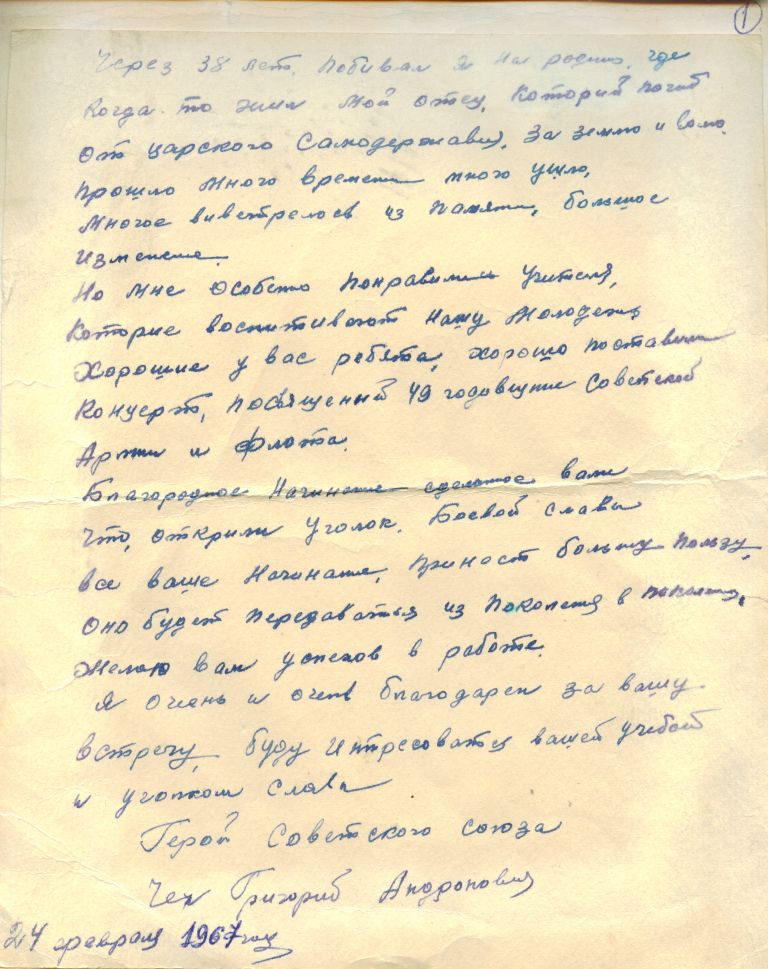 1
Через 38 лет. Побивал я на родине, где
когда-то жил мой отец, который погиб
от царского самодержавия, за землю и волю.
Прошло много времени много ушло,
многое виветрелось из памяти, большое
изменение.
Но мне особенно понравились учителя,
которие воспитивают нашу молодежь
Хорошие у вас ребята, хорошо поставили
концерт, посвященый 49 годовщине Советской
Армии и флота.
Благородное начинание сделанное вами
что, открили уголок. Боевой слави
все ваше начинание, приност большую пользу,
оно будет передаваться из поколения в поколения,
Желаю вам успехов в работе.
Я очень и очень благодарен за вашу
встречу, буду интресоватся вашей учебой
и уголком слави
Герой Советского союза
Чех Григорий Андронович
24 февраля 1967 год